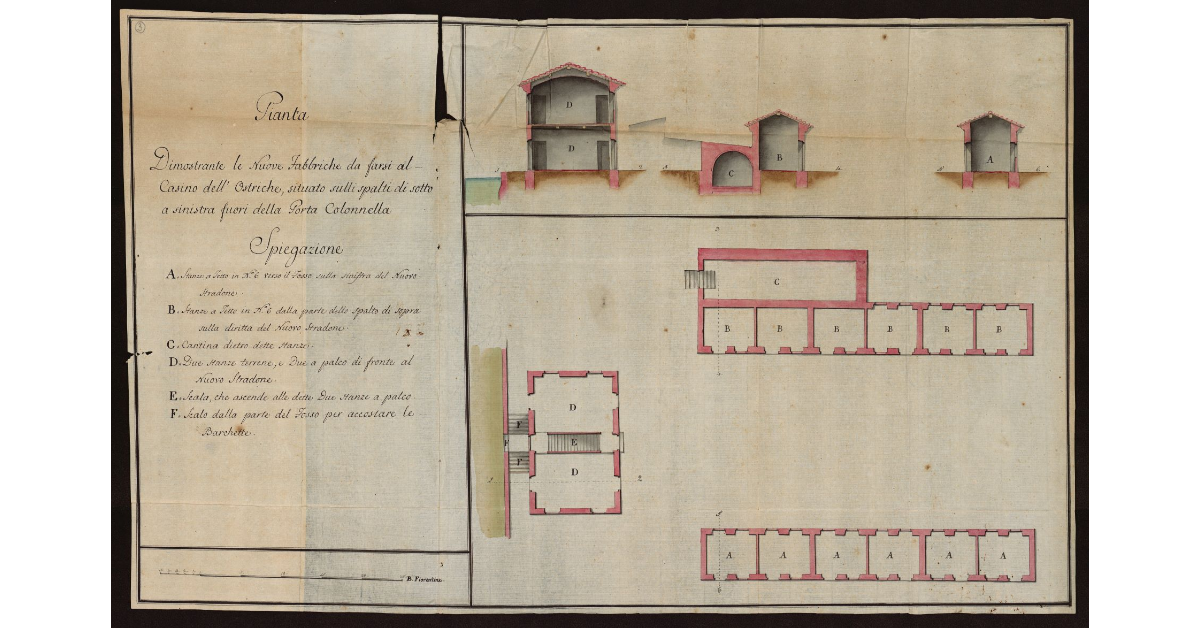 3
Pianta
Dimostrante le Nuove Fabbriche da farsi al-
Casino dell' Ostriche, situato sulli spalti di sotto
a sinistra fuori della Porta Colonnella
Spiegazione
A. Stanze a Tetto in N.º 6 verso il Fosso sulla sinistra del Nuovo
Stradone.
B. Stanze a Tetto in N.º 6 dalla parte dello spalto di sopra
sulla diritta del Nuovo Stradone.
C. Cantina dietro dette Stanze.
D. Due stanze terrene, e Due a palco di fronte al
Nuovo Stradone.
E. Scala, che ascende alle dette Due Stanze a palco
F. Scalo dalla parte del Fosso per accostare le
Barchette.
B. Fiorentine
D
D
B
C
A
C
B B B B B B
D
F
E
F
F
D
A A A A A A